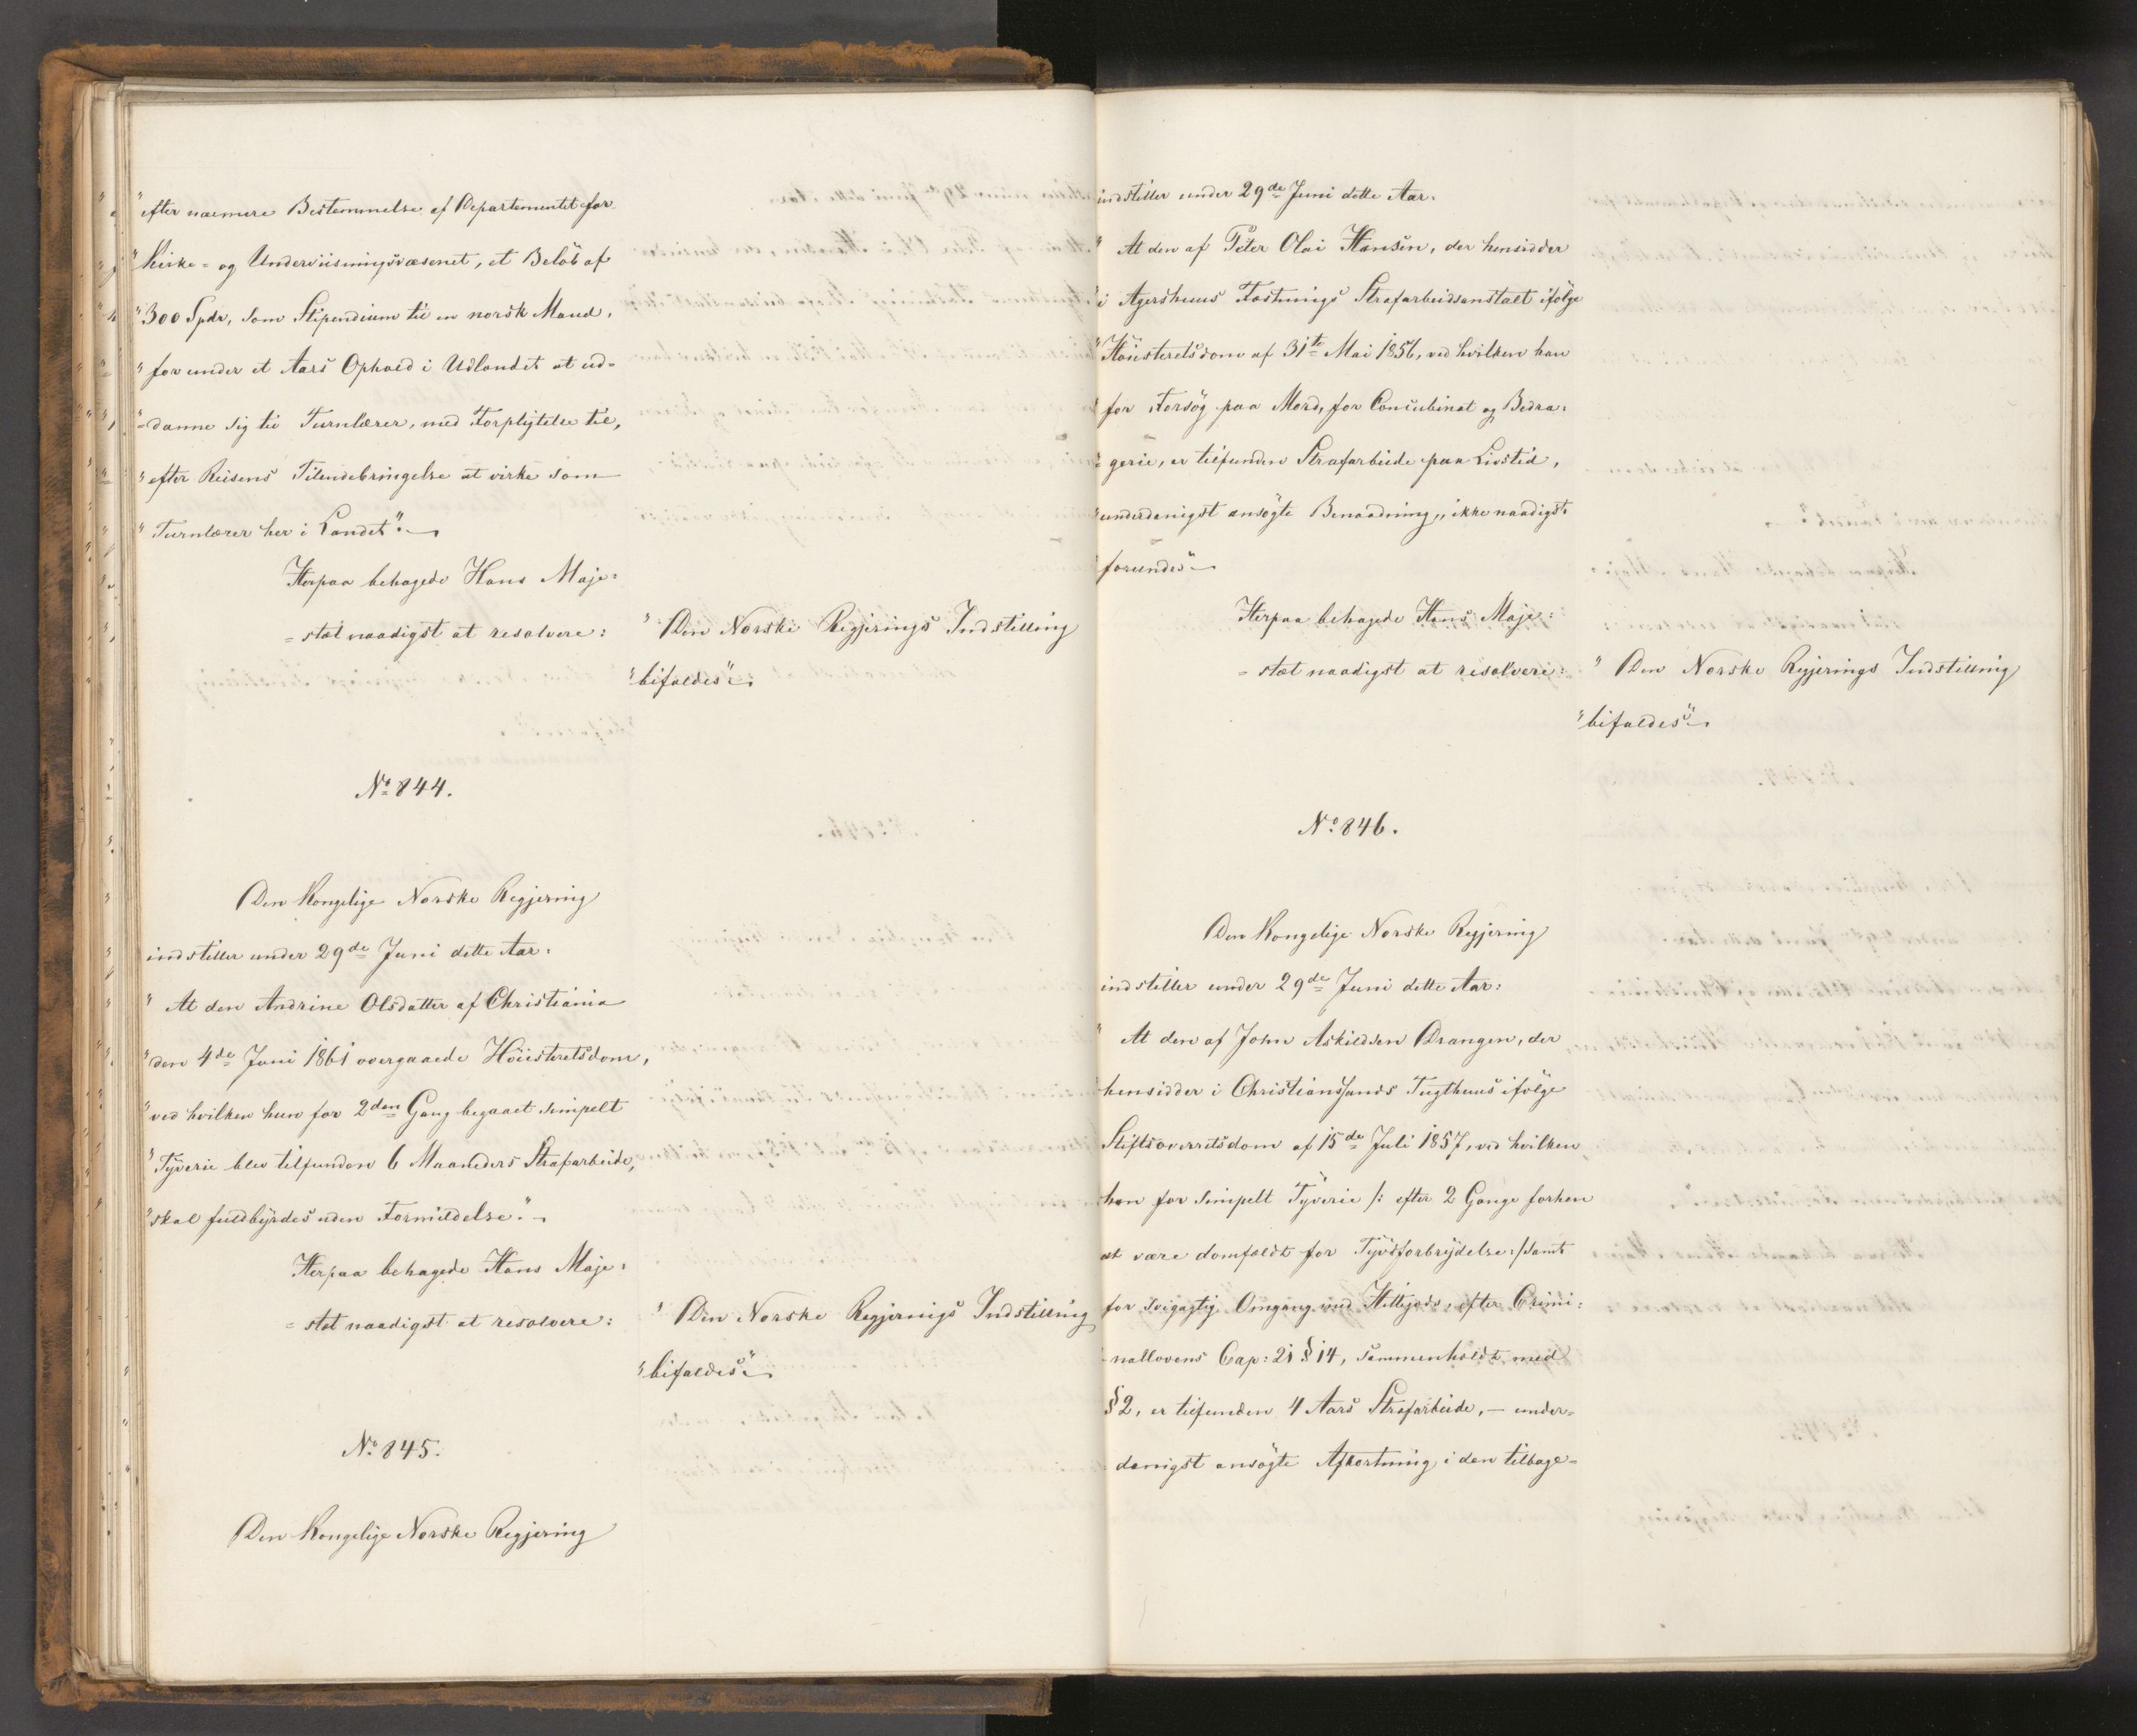 "efter nærmere Bestemmelse af Departementet for
"Kirke- og Underviisningsvæsenet, et Beløb af
"300 Spdr, som Stipendium til en norsk Mand,
"for under et Aars Ophold i Udlandet at ud=
"=danne sig til Turnlærer, med Forpligtelse til,
"efter Reisens Tilendebringelse at virke som
"Turnlærer her i Landet".
Herpaa behagede Hans Maje=
=stæt naadigst at resolvere:
"Den Norske Regjerings Indstilling
"bifaldes".
No 844.
Den Kongelige Norske Regjering
indstiller under 29de Juni dette Aar:
"At den Andrine Olsdatter af Christiania
"den 4de Juni 1861 overgaaede Høiesteretsdom,
"ved hvilken hun for 2den Gang begaaet simpelt
"Tyverie blev tilfunden 6 Maaneders Strafarbeide,
"skal fuldbyrdes uden Formildelse".
Herpaa behagede Hans Maje=
=stæt naadigst at resolvere:
"Den Norske Regjerings Indstilling
"bifaldes".
No 845.
Den Kongelige Norske Regjering
indstiller under 29de Juni dette Aar:
"At den af Peter Olai Hansen, der hensidder
"i Agershuus Fæstnings Strafarbeidsanstalt ifølge
"Høiesteretsdom af 31te Mai 1856, ved hvilken han
"for Forsøg paa Mord, for Concubinat og Bedra=
"=gerie, er tilfunden Strafarbeide paa Livstid,
"underdanigst ansøgte Benaadning, ikke naadigst
"forundes"
Herpaa behagede Hans Maje=
=stæt naadigst at resolvere:
"Den Norske Regjerings Indstilling
"bifaldes".
No 846.
Den Kongelige Norske Regjering
indstiller under 29de Juni dette Aar:
"At den af John Askildsen Drangen, der
hensidder i Christianssands Tugthuus ifølge
Stiftsoverretsdom af 15de Juli 1857, ved hvilken
han for simpelt Tyverie /: efter 2 Gange forhen
at være domfældt for Tyvsforbrydelse :/ samt
for svigagtig Omgang med Hittegods, efter Crimi=
nallovens Cap: 21 § 14, sammenholdt med
§ 2, er tilfunden 4 Aars Strafarbeide, – under=
danigst ansøgte Afkortning i den tilbage=